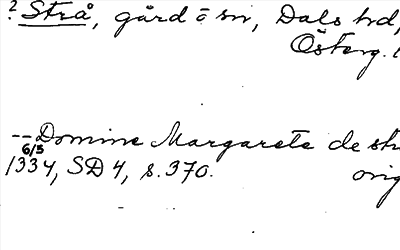 ? Strå, gård ö sn, Dals hd,
Österg. l
-- Domine Margarete de str
6/5
1334, SD 4, s. 370. orig